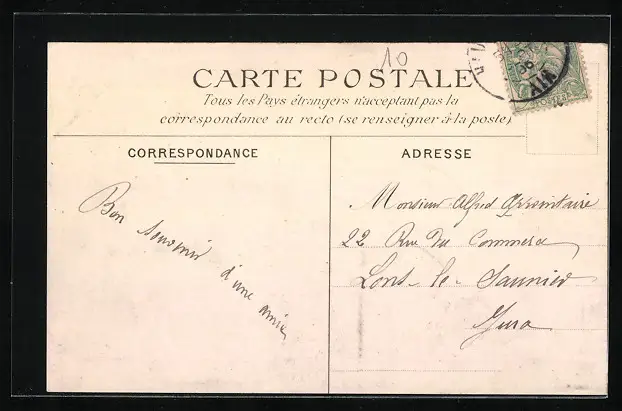 10
CARTE POSTALE
Tous les Pays étrangers n'acceptant pas la
correspondance au recto (se renseigner à la poste)
CORRESPONDANCE
ADRESSE
Bon souvenir d'une amie
Monsieur Alfred
22 Rue du Commerce
Lons-le-Saunier
Jura